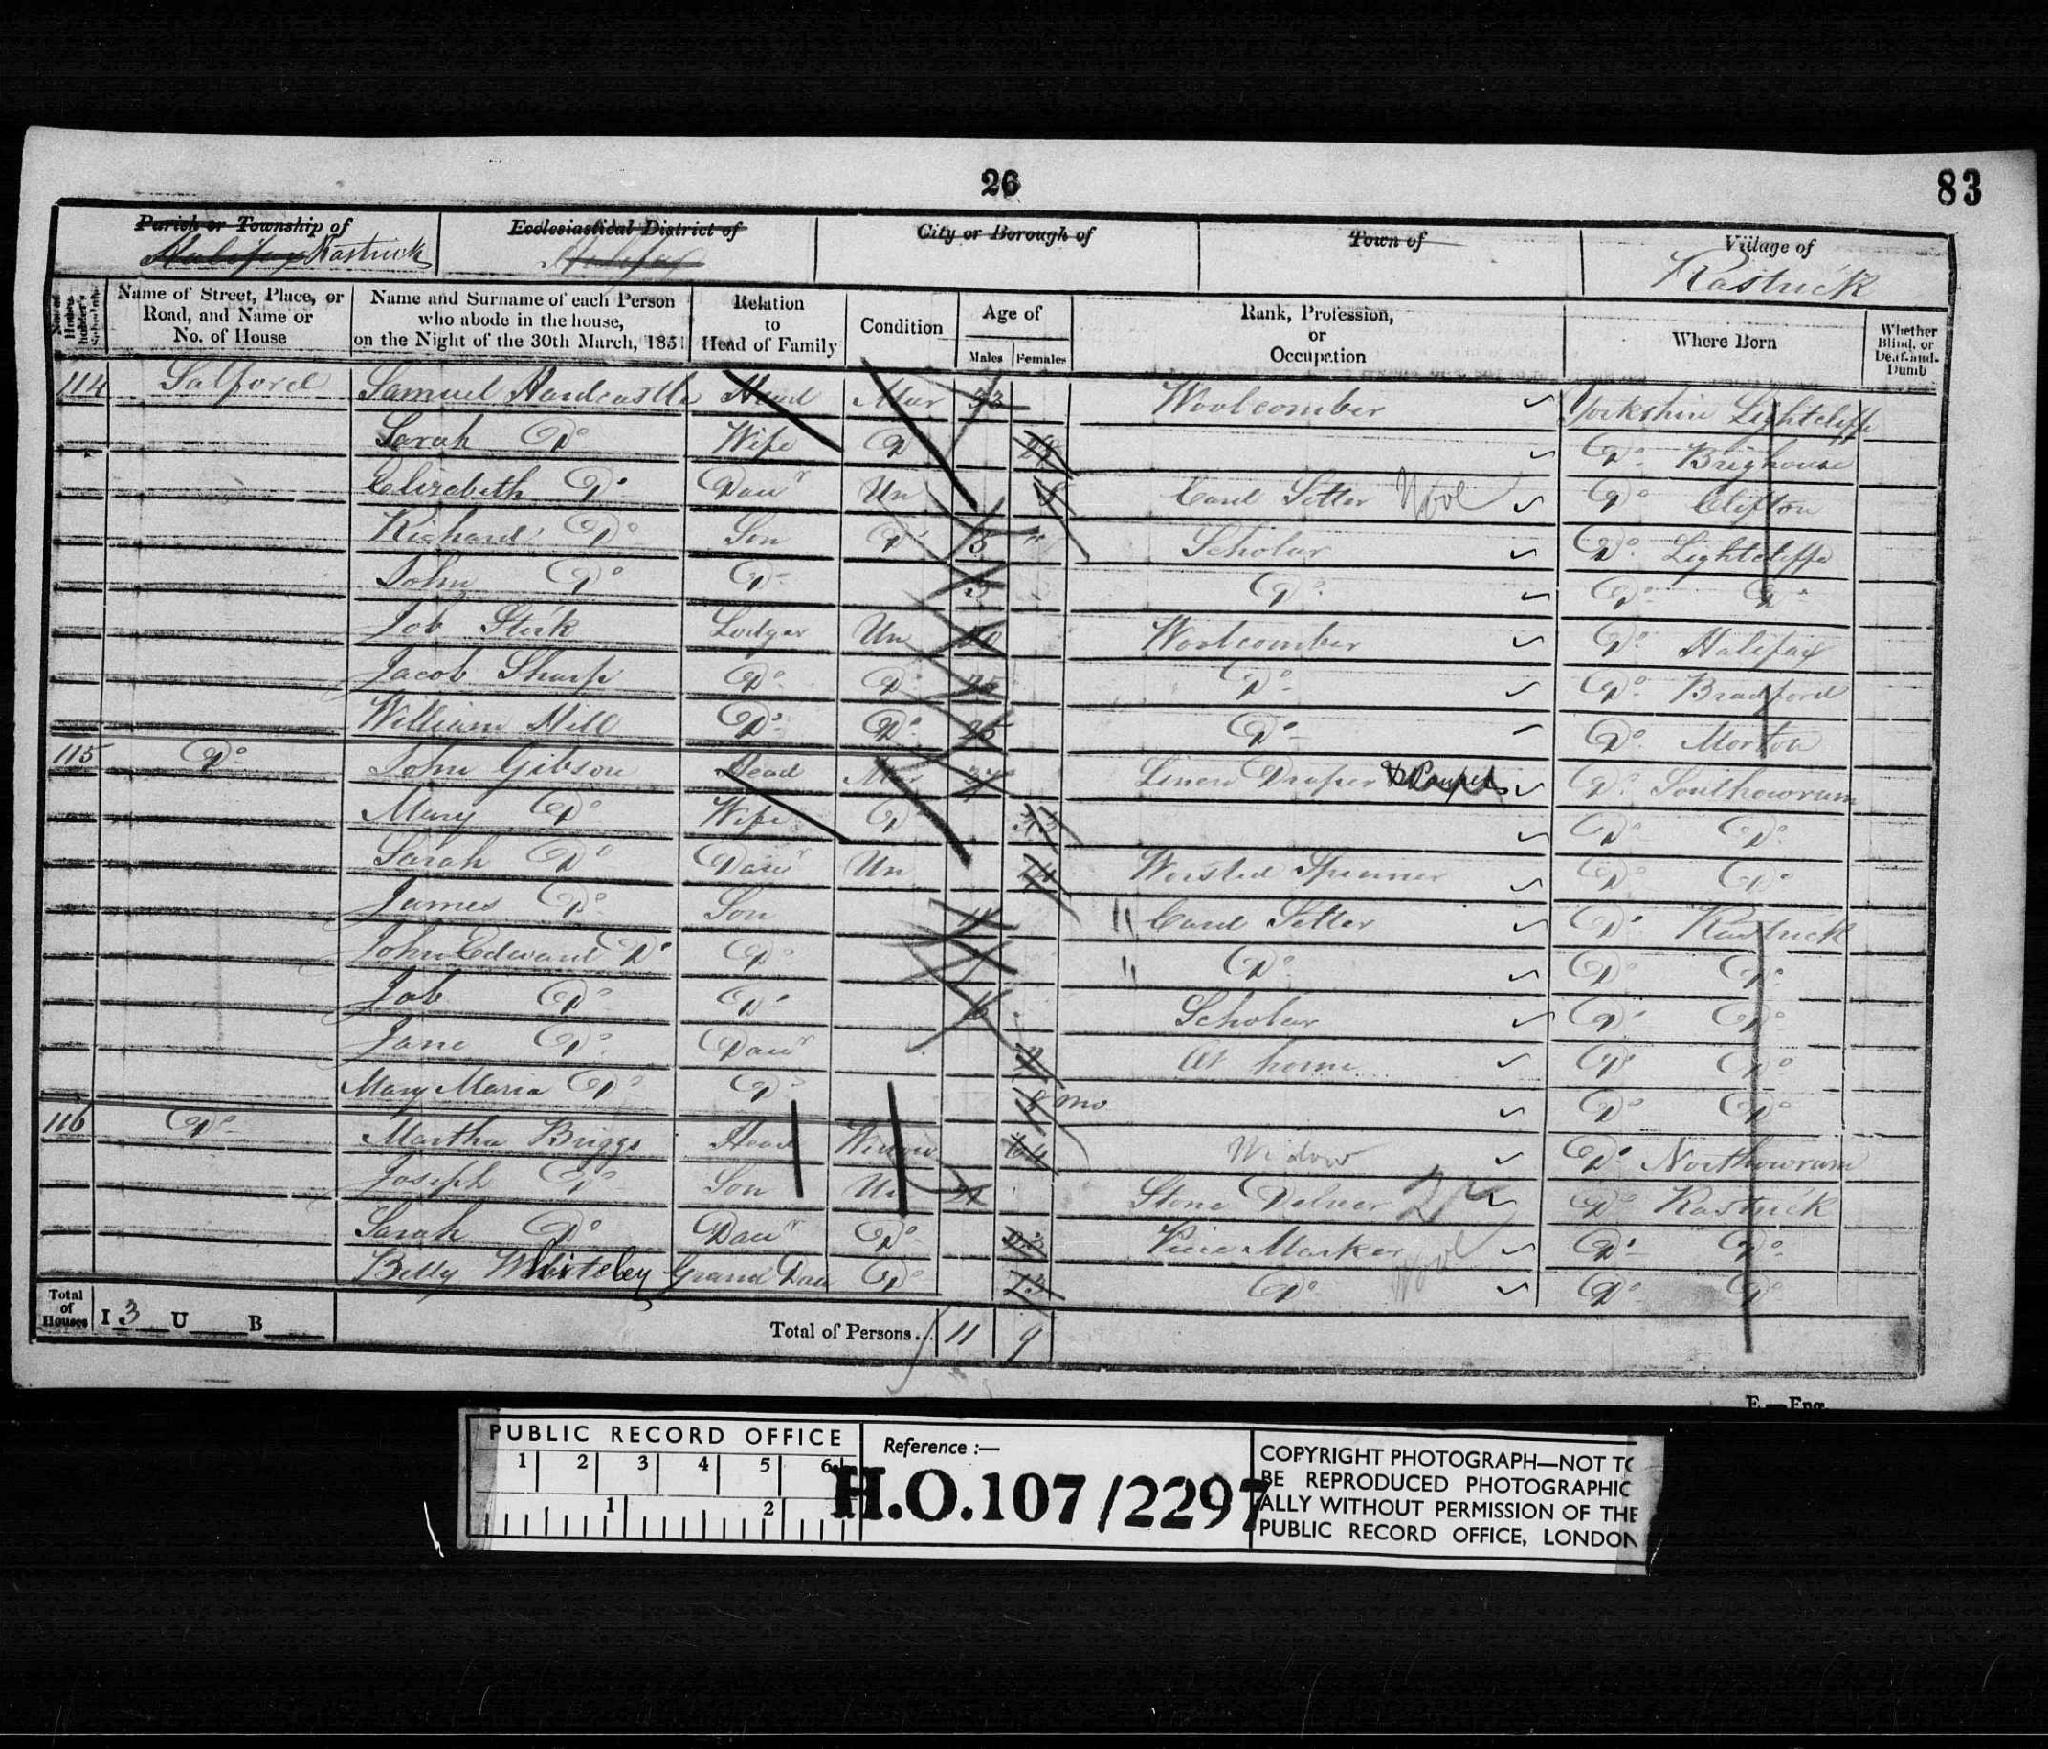 26
83
Parish or Township of
Halifax Rastrick
Ecclesiastical District of
Halifax
City or Borough of
Town of
Village of
Rastrick
No. of House-holder's Schedule
Name of Street, Place, or Road, and Name or No. of House
Name and Surname of each Person who abode in the house, on the Night of the 30th March, 1851
Relation to Head of Family
Condition
Age of
Males Females
Rank, Profession, or Occupation
Where Born
Whether Blind, or Deaf-and-Dumb
114 Salford Samuel Hardcastle Head Mar 33 Woolcomber Yorkshire Lightcliffe
Sarah Do Wife Do Do Brighouse
Elizabeth Do Daur Un 8 Card Setter Wool Do Clifton
Richard Do Son Do Scholar Do Lightcliffe
John Do Do Do Do Do
Job Stork Lodger Un Woolcomber Do Halifax
Jacob Sharp Do Do 25 Do Do Bradford
William Hill Do Do 25 Do Do Morton
115 Do John Gibson Head Mar 37 Linen Draper Do Southowram
Mary Do Wife Do Do Do
Sarah Do Daur Un 14 Worsted Spinner Do Do
James Do Son 11 Card Setter Do Rastrick
John Edward Do Do Do Do Do
Job Do Do 6 Scholar Do Do
Jane Do Daur At home Do Do
Mary Maria Do Do 8 mo Do Do
116 Do Martha Briggs Head Widow 64 Widow Do Northowram
Joseph Do Son Un Stone Delver Do Rastrick
Sarah Do Daur Do Piece Marker Wool Do Do
Betty Whiteley Grand Dau Do 13 Do Do Do
Total of Houses I 3 U B Total of Persons... 11 9
E.—Eng.
PUBLIC RECORD OFFICE
1 2 3 4 5 6
1 2
Reference :—
H.O.107/2297
COPYRIGHT PHOTOGRAPH—NOT TO
BE REPRODUCED PHOTOGRAPHIC
ALLY WITHOUT PERMISSION OF THE
PUBLIC RECORD OFFICE, LONDON